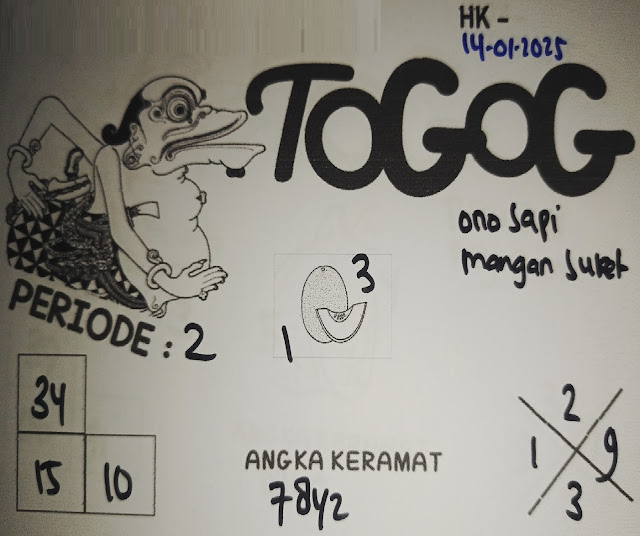 HK -
14-01-2025
TOGOG
ono sapi
mangan suket
3
1
PERIODE : 2
34
15 10
ANGKA KERAMAT
7842
2
1 9
3